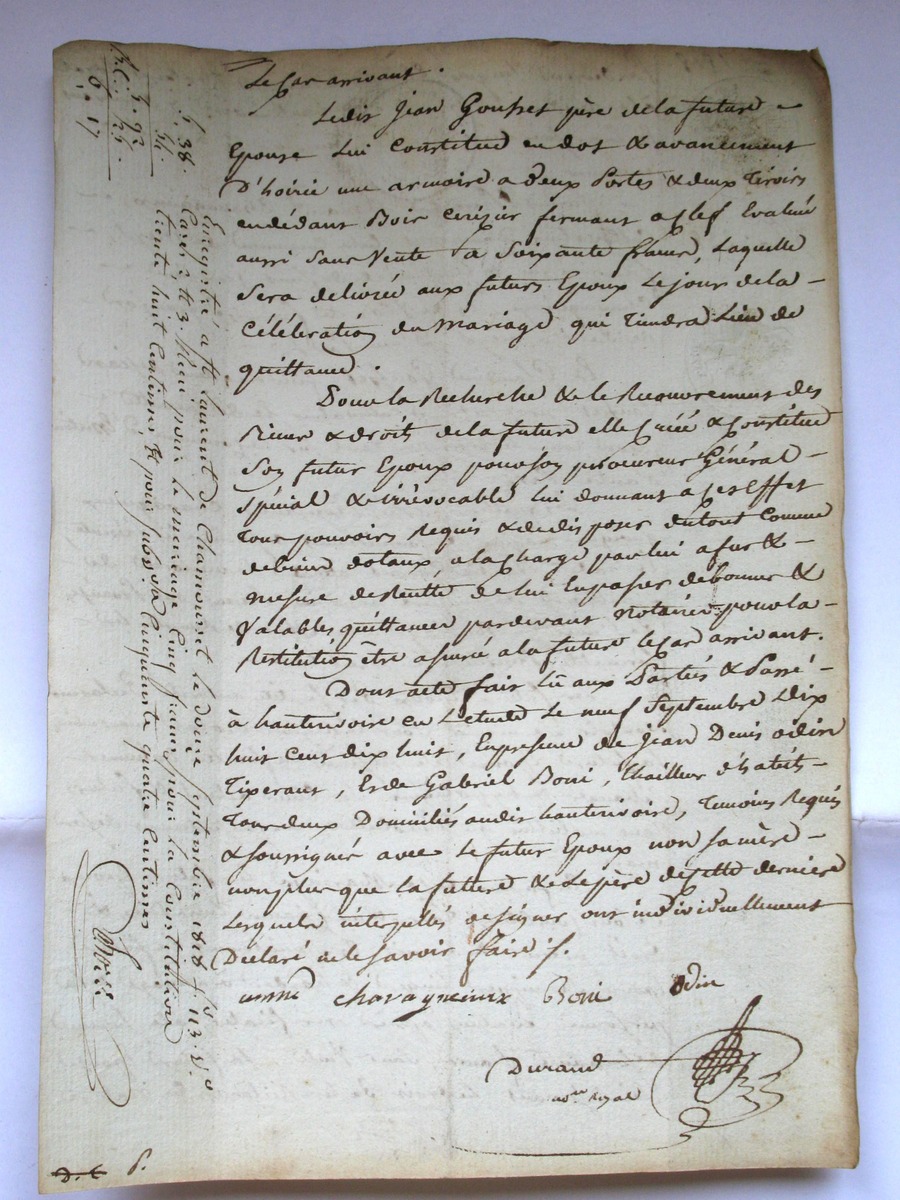 le Cas arrivant.
Ledit Jean Gousset père de la future
Epouse lui Constitue en dot & avancement
d'hoirie une armoire a deux Portes & deux Tiroirs
en dédans Bois cerisier fermant a clef Evaluée
aussi sans Vente a Soixante francs, Laquelle
Sera delivrée aux futurs Epoux le jour de la
Célébration du mariage qui Tiendra Lieu de
quittance.
Pour la Recherche & le Recouvrement des
Biens & droits de la future elle Créé & Constitue
Son futur Epoux pour son procureur Général
Spécial & irrévocable lui donnant a cet Effet
Tous pouvoirs Requis & de disposer du tout Comme
de biens dotaux, a la Charge par lui a fur &
mesure de Recette de lui En passer de bonnes &
Valables quittances par devant Notaire pour la
Restitution être assuré a la future le Cas arrivant.
Dont acte fait lu aux Parties & Passé
à hauterivoire en L'etude Le neuf Septembre Dix
huit cent dix huit, En presence de Jean Denis Odin
Tixerant, Et de Gabriel Boni, Thailleur d'habits
Tous deux Domiciliés audit hauterivoire, Temoins Requis
& soussignés avec Le futur Epoux non sa mère
non plus que la future & Le père de cette derniere
Lesquels interpellés de signer ont individuellement
Déclaré ne le savoir faire /.
Chavagneux Boni Odin
Durand
No.re Royal
Enregistré a St. Laurent de Chamousset le douze Septembre 1818 f.º 113. V.º
Cases 2 & 3. Reçu pour le mariage Cinq francs pour la Constitution
trente huit Centimes & pour Subv.on Cinquante quatre Centimes
5. 38.
54.
5. 92
25.
6. 17